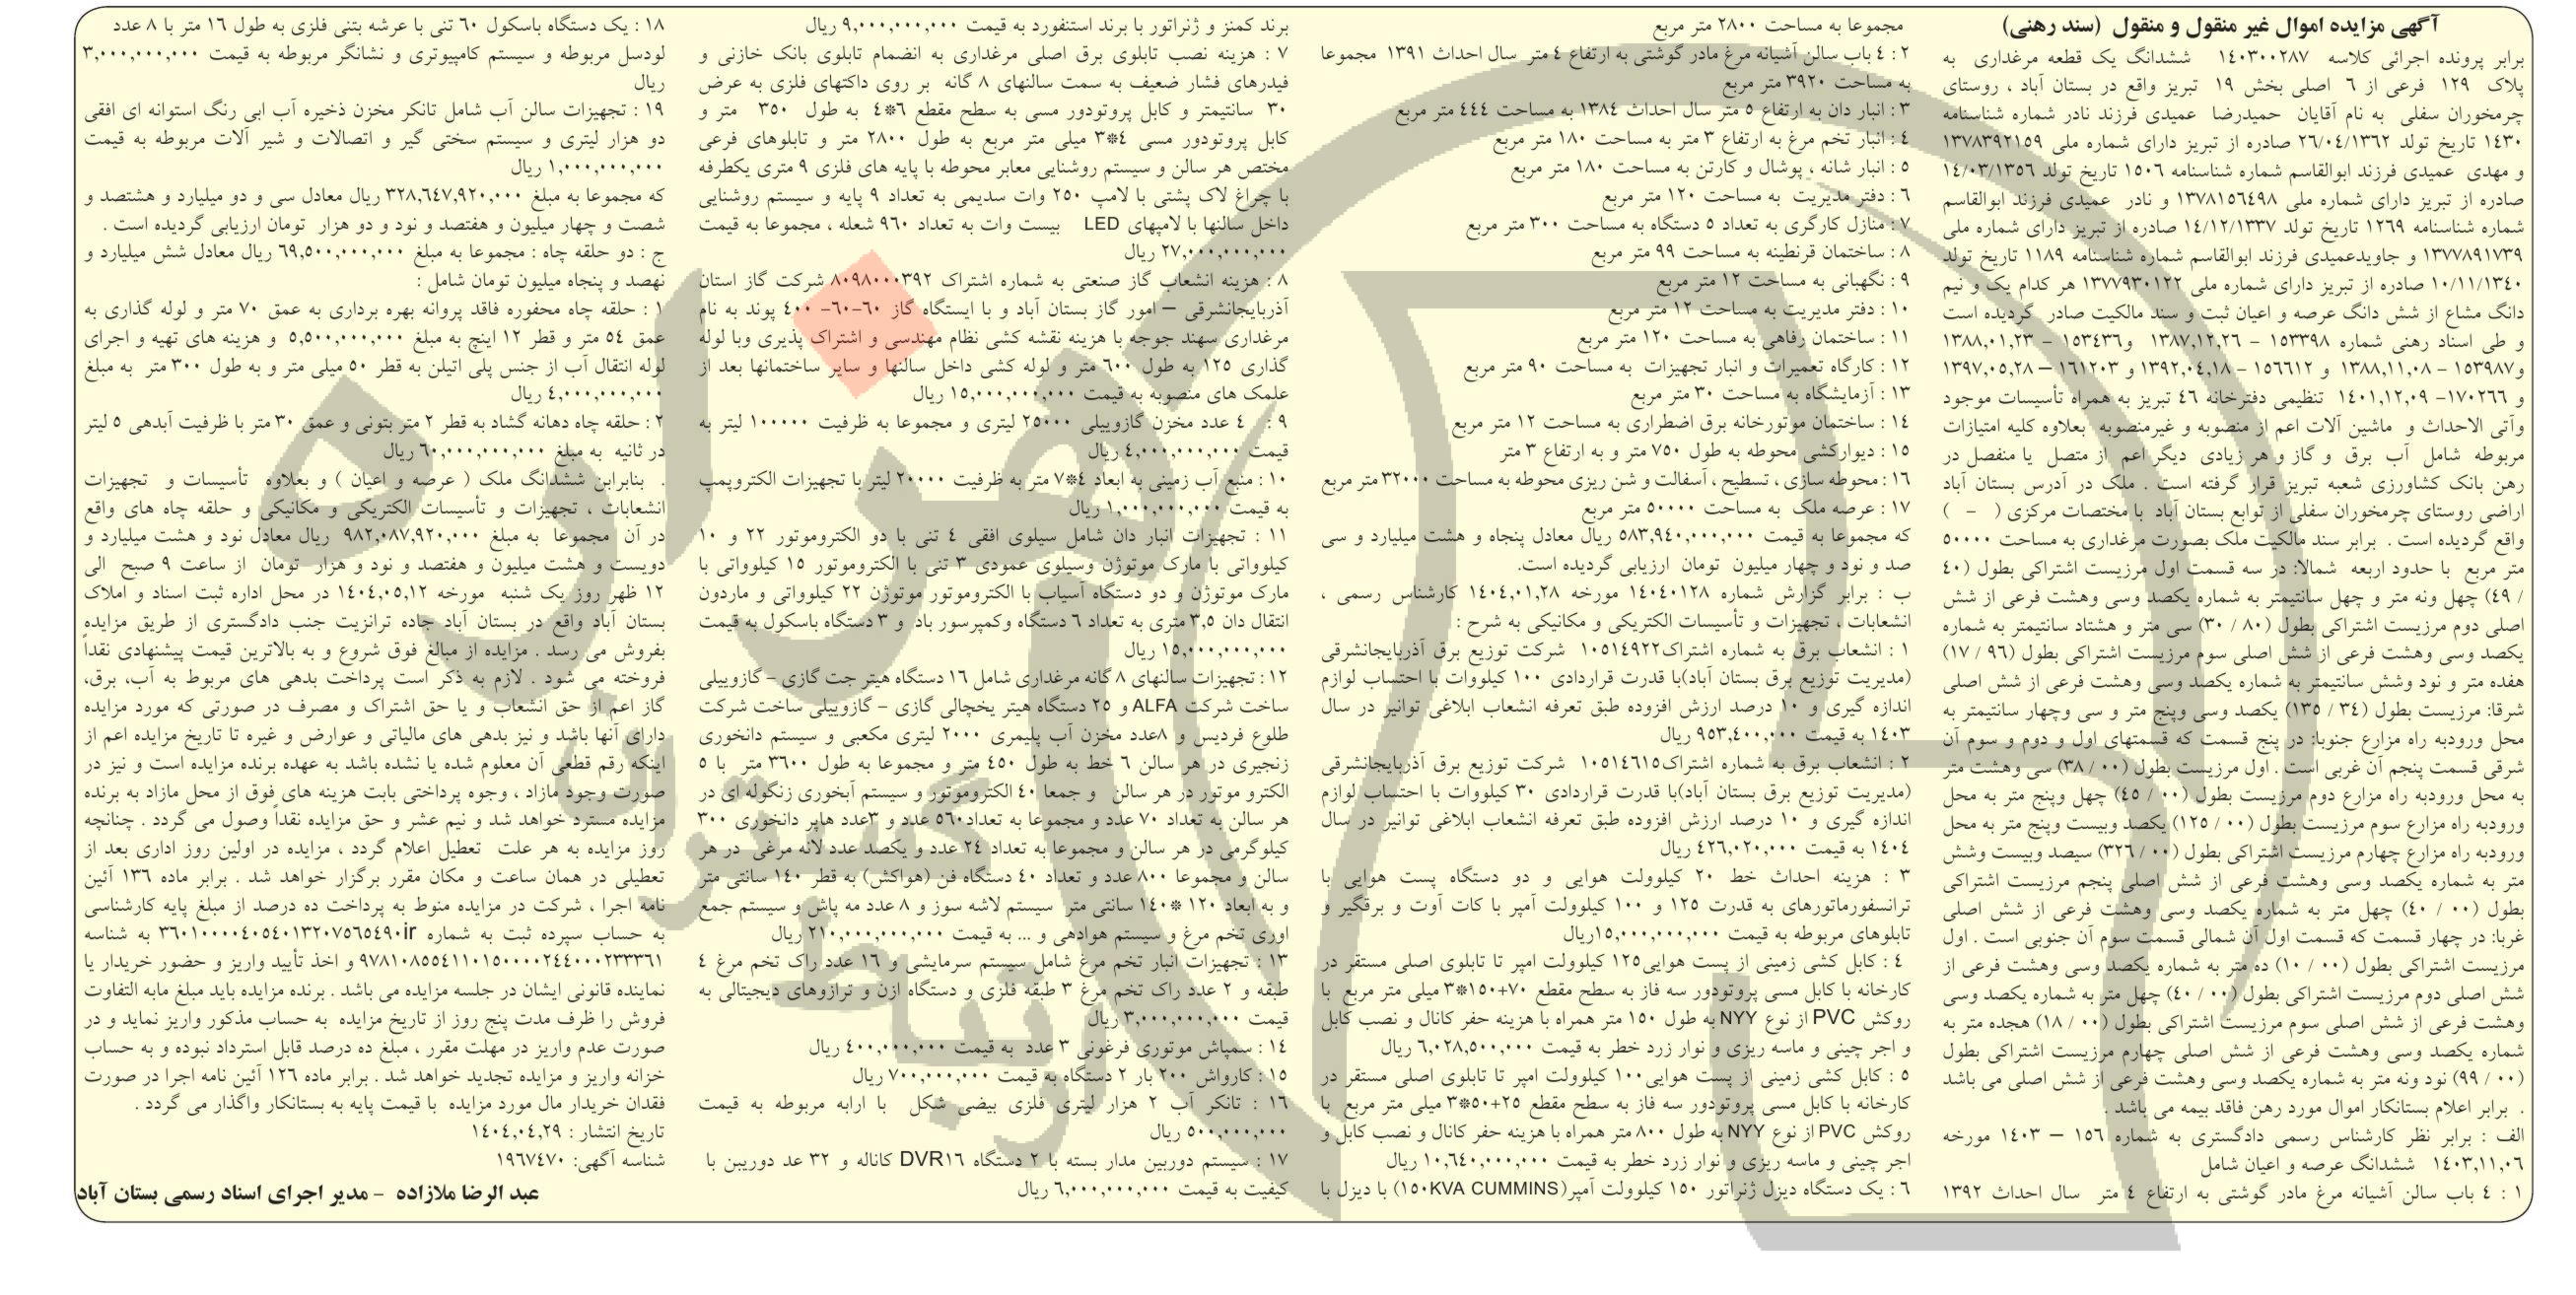 آگهی مزایده اموال غیر منقول و منقول (سند رهنی)
برابر پرونده اجرائی کلاسه ۱٤۰۳۰۰۲۸۷ ششدانگ یک قطعه مرغداری به
پلاک ۱۲۹ فرعی از ٦ اصلی بخش ۱۹ تبریز واقع در بستان آباد ، روستای
چرمخوران سفلی به نام آقایان حمیدرضا عمیدی فرزند نادر شماره شناسنامه
۱٤۳۰ تاریخ تولد ۲٦/۰٤/۱۳٦۲ صادره از تبریز دارای شماره ملی ۱۳۷۸۳۹۲۱٥۹
و مهدی عمیدی فرزند ابوالقاسم شماره شناسنامه ۱٥۰٦ تاریخ تولد ۱٤/۰۳/۱۳٥٦
صادره از تبریز دارای شماره ملی ۱۳۷۸۱٥٦٤۹۸ و نادر عمیدی فرزند ابوالقاسم
شماره شناسنامه ۱۲٦۹ تاریخ تولد ۱٤/۱۲/۱۳۳۷ صادره از تبریز دارای شماره ملی
۱۳۷۷۸۹۱۷۳۹ و جاویدعمیدی فرزند ابوالقاسم شماره شناسنامه ۱۱۸۹ تاریخ تولد
۱۰/۱۱/۱۳٤۰ صادره از تبریز دارای شماره ملی ۱۳۷۷۹۳۰۱۲۲ هر کدام یک و نیم
دانگ مشاع از شش دانگ عرصه و اعیان ثبت و سند مالکیت صادر گردیده است
و طی اسناد رهنی شماره ۱٥۳۳۹۸ – ۱۳۸۷,۱۲,۲٦ و۱٥۳٤۳٦ – ۱۳۸۸,۰۱,۲۳
و۱٥۳۹۸۷ – ۱۳۸۸,۱۱,۰۸ و ۱٥٦٦۱۲ – ۱۳۹۲,۰٤,۱۸ و ۱٦۱۲۰۳ – ۱۳۹۷,۰٥,۲۸
و ۱۷۰۲٦٦- ۱٤۰۱,۱۲,۰۹ تنظیمی دفترخانه ٤٦ تبریز به همراه تأسیسات موجود
وآتی الاحداث و ماشین آلات اعم از منصوبه و غیرمنصوبه بعلاوه کلیه امتیازات
مربوطه شامل آب برق و گاز و هر زیادی دیگر اعم از متصل یا منفصل در
رهن بانک کشاورزی شعبه تبریز قرار گرفته است . ملک در آدرس بستان آباد
اراضی روستای چرمخوران سفلی از توابع بستان آباد با مختصات مرکزی ( - )
واقع گردیده است . برابر سند مالکیت ملک بصورت مرغداری به مساحت ٥۰۰۰۰
متر مربع با حدود اربعه شمالا: در سه قسمت اول مرزیست اشتراکی بطول (٤۰
/ ٤۹) چهل ونه متر و چهل سانتیمتر به شماره یکصد وسی وهشت فرعی از شش
اصلی دوم مرزیست اشتراکی بطول (۸۰ / ۳۰) سی متر و هشتاد سانتیمتر به شماره
یکصد وسی وهشت فرعی از شش اصلی سوم مرزیست اشتراکی بطول (۹٦ / ۱۷)
هفده متر و نود وشش سانتیمتر به شماره یکصد وسی وهشت فرعی از شش اصلی
شرقا: مرزیست بطول (۳٤ / ۱۳٥) یکصد وسی وپنج متر و سی وچهار سانتیمتر به
محل ورودبه راه مزارع جنوبا: در پنج قسمت که قسمتهای اول و دوم و سوم آن
شرقی قسمت پنجم آن غربی است . اول مرزیست بطول (۰۰ / ۳۸) سی وهشت متر
به محل ورودبه راه مزارع دوم مرزیست بطول (۰۰ / ٤٥) چهل وپنج متر به محل
ورودبه راه مزارع سوم مرزیست بطول (۰۰ / ۱۲٥) یکصد وبیست وپنج متر به محل
ورودبه راه مزارع چهارم مرزیست اشتراکی بطول (۰۰ / ۳۲٦) سیصد وبیست وشش
متر به شماره یکصد وسی وهشت فرعی از شش اصلی پنجم مرزیست اشتراکی
بطول (۰۰ / ٤۰) چهل متر به شماره یکصد وسی وهشت فرعی از شش اصلی
غربا: در چهار قسمت که قسمت اول آن شمالی قسمت سوم آن جنوبی است . اول
مرزیست اشتراکی بطول (۰۰ / ۱۰) ده متر به شماره یکصد وسی وهشت فرعی از
شش اصلی دوم مرزیست اشتراکی بطول (۰۰ / ٤۰) چهل متر به شماره یکصد وسی
وهشت فرعی از شش اصلی سوم مرزیست اشتراکی بطول (۰۰ / ۱۸) هجده متر به
شماره یکصد وسی وهشت فرعی از شش اصلی چهارم مرزیست اشتراکی بطول
(۰۰ / ۹۹) نود ونه متر به شماره یکصد وسی وهشت فرعی از شش اصلی می باشد
. برابر اعلام بستانکار اموال مورد رهن فاقد بیمه می باشد .
الف : برابر نظر کارشناس رسمی دادگستری به شماره ۱٥٦ – ۱٤۰۳ مورخه
۱٤۰۳,۱۱,۰٦ ششدانگ عرصه و اعیان شامل
۱ : ٤ باب سالن آشیانه مرغ مادر گوشتی به ارتفاع ٤ متر سال احداث ۱۳۹۲
مجموعا به مساحت ۲۸۰۰ متر مربع
۲ : ٤ باب سالن آشیانه مرغ مادر گوشتی به ارتفاع ٤ متر سال احداث ۱۳۹۱ مجموعا
به مساحت ۳۹۲۰ متر مربع
۳ : انبار دان به ارتفاع ٥ متر سال احداث ۱۳۸٤ به مساحت ٤٤٤ متر مربع
٤ : انبار تخم مرغ به ارتفاع ۳ متر به مساحت ۱۸۰ متر مربع
٥ : انبار شانه ، پوشال و کارتن به مساحت ۱۸۰ متر مربع
٦ : دفتر مدیریت به مساحت ۱۲۰ متر مربع
۷ : منازل کارگری به تعداد ٥ دستگاه به مساحت ۳۰۰ متر مربع
۸ : ساختمان قرنطینه به مساحت ۹۹ متر مربع
۹ : نگهبانی به مساحت ۱۲ متر مربع
۱۰ : دفتر مدیریت به مساحت ۱۲ متر مربع
۱۱ : ساختمان رفاهی به مساحت ۱۲۰ متر مربع
۱۲ : کارگاه تعمیرات و انبار تجهیزات به مساحت ۹۰ متر مربع
۱۳ : آزمایشگاه به مساحت ۳۰ متر مربع
۱٤ : ساختمان موتورخانه برق اضطراری به مساحت ۱۲ متر مربع
۱٥ : دیوارکشی محوطه به طول ۷٥۰ متر و به ارتفاع ۳ متر
۱٦ : محوطه سازی ، تسطیح ، آسفالت و شن ریزی محوطه به مساحت ۳۲۰۰۰ متر مربع
۱۷ : عرصه ملک به مساحت ٥۰۰۰۰ متر مربع
که مجموعا به قیمت ٥۸۳,۹٤۰,۰۰۰,۰۰۰ ریال معادل پنجاه و هشت میلیارد و سی
صد و نود و چهار میلیون تومان ارزیابی گردیده است.
ب : برابر گزارش شماره ۱٤۰٤۰۱۲۸ مورخه ۱٤۰٤,۰۱,۲۸ کارشناس رسمی ،
انشعابات ، تجهیزات و تأسیسات الکتریکی و مکانیکی به شرح :
۱ : انشعاب برق به شماره اشتراک۱۰٥۱٤۹۲۲ شرکت توزیع برق آذربایجانشرقی
(مدیریت توزیع برق بستان آباد)با قدرت قراردادی ۱۰۰ کیلووات با احتساب لوازم
اندازه گیری و ۱۰ درصد ارزش افزوده طبق تعرفه انشعاب ابلاغی توانیر در سال
۱٤۰۳ به قیمت ۹٥۳,٤۰۰,۰۰۰ ریال
۲ : انشعاب برق به شماره اشتراک۱۰٥۱٤٦۱٥ شرکت توزیع برق آذربایجانشرقی
(مدیریت توزیع برق بستان آباد)با قدرت قراردادی ۳۰ کیلووات با احتساب لوازم
اندازه گیری و ۱۰ درصد ارزش افزوده طبق تعرفه انشعاب ابلاغی توانیر در سال
۱٤۰٤ به قیمت ٤۲٦,۰۲۰,۰۰۰ ریال
۳ : هزینه احداث خط ۲۰ کیلوولت هوایی و دو دستگاه پست هوایی با
ترانسفورماتورهای به قدرت ۱۲٥ و ۱۰۰ کیلوولت آمپر با کات آوت و برقگیر و
تابلوهای مربوطه به قیمت ۱٥,۰۰۰,۰۰۰,۰۰۰ریال
٤ : کابل کشی زمینی از پست هوایی۱۲٥ کیلوولت امپر تا تابلوی اصلی مستقر در
کارخانه با کابل مسی پروتودور سه فاز به سطح مقطع ۷۰+۱٥۰*۳ میلی متر مربع با
روکش PVC از نوع NYY به طول ۱٥۰ متر همراه با هزینه حفر کانال و نصب کابل
و اجر چینی و ماسه ریزی و نوار زرد خطر به قیمت ٦,۰۲۸,٥۰۰,۰۰۰ ریال
٥ : کابل کشی زمینی از پست هوایی۱۰۰ کیلوولت امپر تا تابلوی اصلی مستقر در
کارخانه با کابل مسی پروتودور سه فاز به سطح مقطع ۲٥+٥۰*۳ میلی متر مربع با
روکش PVC از نوع NYY به طول ۸۰۰ متر همراه با هزینه حفر کانال و نصب کابل و
اجر چینی و ماسه ریزی و نوار زرد خطر به قیمت ۱۰,٦٤۰,۰۰۰,۰۰۰ ریال
٦ : یک دستگاه دیزل ژنراتور ۱٥۰ کیلوولت آمپر(۱٥۰KVA CUMMINS) با دیزل با
برند کمنز و ژنراتور با برند استنفورد به قیمت ۹,۰۰۰,۰۰۰,۰۰۰ ریال
۷ : هزینه نصب تابلوی برق اصلی مرغداری به انضمام تابلوی بانک خازنی و
فیدرهای فشار ضعیف به سمت سالنهای ۸ گانه بر روی داکتهای فلزی به عرض
۳۰ سانتیمتر و کابل پروتودور مسی به سطح مقطع ٦*٤ به طول ۳٥۰ متر و
کابل پروتودور مسی ٤*۳ میلی متر مربع به طول ۲۸۰۰ متر و تابلوهای فرعی
مختص هر سالن و سیستم روشنایی معابر محوطه با پایه های فلزی ۹ متری یکطرفه
با چراغ لاک پشتی با لامپ ۲٥۰ وات سدیمی به تعداد ۹ پایه و سیستم روشنایی
داخل سالنها با لامپهای LED بیست وات به تعداد ۹٦۰ شعله ، مجموعا به قیمت
۲۷,۰۰۰,۰۰۰,۰۰۰ ریال
۸ : هزینه انشعاب گاز صنعتی به شماره اشتراک ۸۰۹۸۰۰۰۳۹۲ شرکت گاز استان
آذربایجانشرقی – امور گاز بستان آباد و با ایستگاه گاز ٦۰-٦۰- ٤۰۰ پوند به نام
مرغداری سهند جوجه با هزینه نقشه کشی نظام مهندسی و اشتراک پذیری وبا لوله
گذاری ۱۲٥ به طول ٦۰۰ متر و لوله کشی داخل سالنها و سایر ساختمانها بعد از
علمک های منصوبه به قیمت ۱٥,۰۰۰,۰۰۰,۰۰۰ ریال
۹ : ٤ عدد مخزن گازوییلی ۲٥۰۰۰ لیتری و مجموعا به ظرفیت ۱۰۰۰۰۰ لیتر به
قیمت ٤,۰۰۰,۰۰۰,۰۰۰ ریال
۱۰ : منبع آب زمینی به ابعاد ٤*۷ متر به ظرفیت ۲۰۰۰۰ لیتر با تجهیزات الکتروپمپ
به قیمت ۱,۰۰۰,۰۰۰,۰۰۰ ریال
۱۱ : تجهیزات انبار دان شامل سیلوی افقی ٤ تنی با دو الکتروموتور ۲۲ و ۱۰
کیلوواتی با مارک موتوژن وسیلوی عمودی ۳ تنی با الکتروموتور ۱٥ کیلوواتی با
مارک موتوژن و دو دستگاه آسیاب با الکتروموتور موتوژن ۲۲ کیلوواتی و ماردون
انتقال دان ۳,٥ متری به تعداد ٦ دستگاه وکمپرسور باد و ۳ دستگاه باسکول به قیمت
۱٥,۰۰۰,۰۰۰,۰۰۰ ریال
۱۲ : تجهیزات سالنهای ۸ گانه مرغداری شامل ۱٦ دستگاه هیتر جت گازی – گازوییلی
ساخت شرکت ALFA و ۲٥ دستگاه هیتر یخچالی گازی – گازوییلی ساخت شرکت
طلوع فردیس و ۸عدد مخزن آب پلیمری ۲۰۰۰ لیتری مکعبی و سیستم دانخوری
زنجیری در هر سالن ٦ خط به طول ٤٥۰ متر و مجموعا به طول ۳٦۰۰ متر با ٥
الکترو موتور در هر سالن و جمعا ٤۰ الکتروموتور و سیستم آبخوری زنگوله ای در
هر سالن به تعداد ۷۰ عدد و مجموعا به تعداد٥٦۰ عدد و ۳عدد هاپر دانخوری ۳۰۰
کیلوگرمی در هر سالن و مجموعا به تعداد ۲٤ عدد و یکصد عدد لانه مرغی در هر
سالن و مجموعا ۸۰۰ عدد و تعداد ٤۰ دستگاه فن (هواکش) به قطر ۱٤۰ سانتی متر
و به ابعاد ۱۲۰ *۱٤۰ سانتی متر سیستم لاشه سوز و ۸ عدد مه پاش و سیستم جمع
اوری تخم مرغ و سیستم هوادهی و ... به قیمت ۲۱۰,۰۰۰,۰۰۰,۰۰۰ ریال
۱۳ : تجهیزات انبار تخم مرغ شامل سیستم سرمایشی و ۱٦ عدد راک تخم مرغ ٤
طبقه و ۲ عدد راک تخم مرغ ۳ طبقه فلزی و دستگاه ازن و ترازوهای دیجیتالی به
قیمت ۳,۰۰۰,۰۰۰,۰۰۰ ریال
۱٤ : سمپاش موتوری فرغونی ۳ عدد به قیمت ٤۰۰,۰۰۰,۰۰۰ ریال
۱٥ : کارواش ۲۰۰ بار ۲ دستگاه به قیمت ۷۰۰,۰۰۰,۰۰۰ ریال
۱٦ : تانکر آب ۲ هزار لیتری فلزی بیضی شکل با ارابه مربوطه به قیمت
٥۰۰,۰۰۰,۰۰۰ ریال
۱۷ : سیستم دوربین مدار بسته با ۲ دستگاه DVR۱٦ کاناله و ۳۲ عد دوربین با
کیفیت به قیمت ٦,۰۰۰,۰۰۰,۰۰۰ ریال
۱۸ : یک دستگاه باسکول ٦۰ تنی با عرشه بتنی فلزی به طول ۱٦ متر با ۸ عدد
لودسل مربوطه و سیستم کامپیوتری و نشانگر مربوطه به قیمت ۳,۰۰۰,۰۰۰,۰۰۰
ریال
۱۹ : تجهیزات سالن آب شامل تانکر مخزن ذخیره آب ابی رنگ استوانه ای افقی
دو هزار لیتری و سیستم سختی گیر و اتصالات و شیر آلات مربوطه به قیمت
۱,۰۰۰,۰۰۰,۰۰۰ ریال
که مجموعا به مبلغ ۳۲۸,٦٤۷,۹۲۰,۰۰۰ ریال معادل سی و دو میلیارد و هشتصد و
شصت و چهار میلیون و هفتصد و نود و دو هزار تومان ارزیابی گردیده است .
ج : دو حلقه چاه : مجموعا به مبلغ ٦۹,٥۰۰,۰۰۰,۰۰۰ ریال معادل شش میلیارد و
نهصد و پنجاه میلیون تومان شامل :
۱ : حلقه چاه محفوره فاقد پروانه بهره برداری به عمق ۷۰ متر و لوله گذاری به
عمق ٥٤ متر و قطر ۱۲ اینچ به مبلغ ٥,٥۰۰,۰۰۰,۰۰۰ و هزینه های تهیه و اجرای
لوله انتقال آب از جنس پلی اتیلن به قطر ٥۰ میلی متر و به طول ۳۰۰ متر به مبلغ
٤,۰۰۰,۰۰۰,۰۰۰ ریال
۲ : حلقه چاه دهانه گشاد به قطر ۲ متر بتونی و عمق ۳۰ متر با ظرفیت آبدهی ٥ لیتر
در ثانیه به مبلغ ٦۰,۰۰۰,۰۰۰,۰۰۰ ریال
. بنابرابن ششدانگ ملک ( عرصه و اعیان ) و بعلاوه تأسیسات و تجهیزات
انشعابات ، تجهیزات و تأسیسات الکتریکی و مکانیکی و حلقه چاه های واقع
در آن مجموعا به مبلغ ۹۸۲,۰۸۷,۹۲۰,۰۰۰ ریال معادل نود و هشت میلیارد و
دویست و هشت میلیون و هفتصد و نود و هزار تومان از ساعت ۹ صبح الی
۱۲ ظهر روز یک شنبه مورخه ۱٤۰٤,۰٥,۱۲ در محل اداره ثبت اسناد و املاک
بستان آباد واقع در بستان آباد جاده ترانزیت جنب دادگستری از طریق مزایده
بفروش می رسد . مزایده از مبالغ فوق شروع و به بالاترین قیمت پیشنهادی نقداً
فروخته می شود . لازم به ذکر است پرداخت بدهی های مربوط به آب، برق،
گاز اعم از حق انشعاب و یا حق اشتراک و مصرف در صورتی که مورد مزایده
دارای آنها باشد و نیز بدهی های مالیاتی و عوارض و غیره تا تاریخ مزایده اعم از
اینکه رقم قطعی آن معلوم شده یا نشده باشد به عهده برنده مزایده است و نیز در
صورت وجود مازاد ، وجوه پرداختی بابت هزینه های فوق از محل مازاد به برنده
مزایده مسترد خواهد شد و نیم عشر و حق مزایده نقداً وصول می گردد . چنانچه
روز مزایده به هر علت تعطیل اعلام گردد ، مزایده در اولین روز اداری بعد از
تعطیلی در همان ساعت و مکان مقرر برگزار خواهد شد . برابر ماده ۱۳٦ آئین
نامه اجرا ، شرکت در مزایده منوط به پرداخت ده درصد از مبلغ پایه کارشناسی
به حساب سپرده ثبت به شماره ۳٦۰۱۰۰۰۰٤۰٥٤۰۱۳۲۰۷٥٦٥٤۹۰ir به شناسه
۹۷۸۱۰۸٥٥٤۱۱۰۱٥۰۰۰۰۲٤٤۰۰۰۲۳۳۳٦۱ و اخذ تأیید واریز و حضور خریدار یا
نماینده قانونی ایشان در جلسه مزایده می باشد . برنده مزایده باید مبلغ مابه التفاوت
فروش را ظرف مدت پنج روز از تاریخ مزایده به حساب مذکور واریز نماید و در
صورت عدم واریز در مهلت مقرر ، مبلغ ده درصد قابل استرداد نبوده و به حساب
خزانه واریز و مزایده تجدید خواهد شد . برابر ماده ۱۲٦ آئین نامه اجرا در صورت
فقدان خریدار مال مورد مزایده با قیمت پایه به بستانکار واگذار می گردد .
تاریخ انتشار : ۱٤۰٤,۰٤,۲۹
شناسه آگهی: ۱۹٦۷٤۷۰
عبد الرضا ملازاده - مدیر اجرای اسناد رسمی بستان آباد